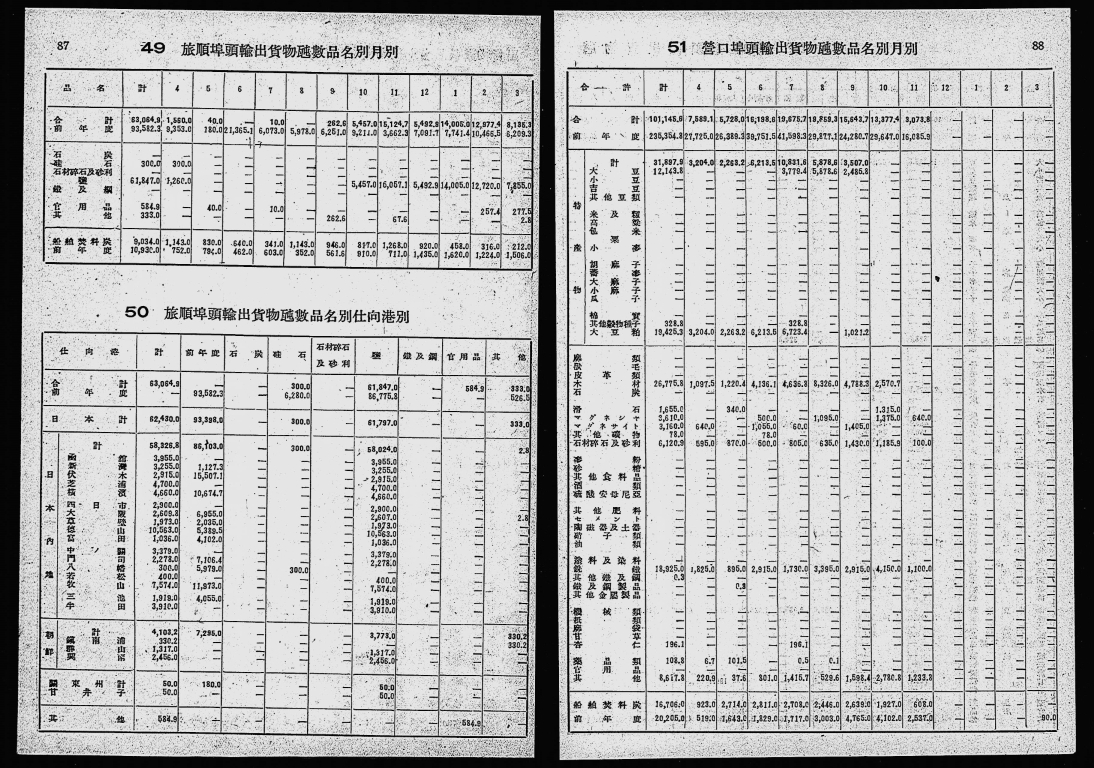 87
49 旅順埠頭輸出貨物噸數品名別月別
品名 計 4 5 6 7 8 9 10 11 12 1 2 3
合計 63,064.9 1,560.0 40.0 — 10.0 — 262.6 5,457.0 15,124.7 5,492.9 14,005.0 12,977.4 8,135.3
前年度 93,582.3 9,353.0 180.0 21,365.1 6,073.0 5,978.0 6,251.0 9,211.0 3,662.3 7,091.7 7,741.4 10,466.5 6,209.3
石炭
硅石 300.0 300.0
石材碎石及砂利
鹽 61,847.0 1,260.0 5,457.0 16,057.1 5,492.9 14,005.0 12,720.0 7,855.0
鐵及鋼
官用品 584.9 — 40.0 — 10.0 257.4 277.5
其他 333.0 262.6 — 67.6 2.8
船舶焚料炭 9,034.0 1,143.0 830.0 640.0 341.0 1,143.0 946.0 817.0 1,268.0 920.0 458.0 316.0 212.0
前年度 10,930.0 752.0 794.0 462.0 603.0 352.0 561.6 910.0 711.0 1,435.0 1,620.0 1,224.0 1,506.0
50 旅順埠頭輸出貨物噸數品名別仕向港別
仕向港 計 前年度 石炭 硅石 石材碎石及砂利 鹽 鐵及鋼 官用品 其他
合計 63,064.9 — — 300.0 — 61,847.0 — 584.9 333.0
前年度 — 93,582.3 — 6,280.0 — 86,775.8 — — 526.5
日本計 62,430.0 93,398.0 — 300.0 — 61,797.0 — — 333.0
日本內地
計 58,326.8 86,103.0 — 300.0 — 58,024.0 — — 2.8
函館 3,955.0 — 3,955.0
新灣 3,255.0 1,127.3 3,255.0
伏木 2,915.0 15,507.1 2,915.0
芝浦 4,700.0 — 4,700.0
橫濱 4,660.0 10,674.7 4,660.0
四日市 2,900.0 — 2,900.0
大阪 2,609.8 6,955.0 2,607.0 2.8
1,973.0 2,035.0 1,973.0
德山 10,563.0 5,339.5 10,563.0
富田 1,036.0 4,102.0 1,036.0
中關 3,379.0 — 3,379.0
門司 2,278.0 7,106.4 2,278.0
八幡 300.0 5,979.0 300.0
若松 400.0 — 400.0
牧山 7,574.0 11,973.0 7,574.0
三池 1,919.0 4,055.0 1,919.0
牛田 3,910.0 — 3,910.0
朝鮮
計 4,103.2 7,295.0 3,773.0 330.2
鎭南浦 330.2 330.2
群山 1,317.0 1,317.0
2,456.0 2,456.0
關東州計 50.0 180.0 50.0
甘井子 50.0 50.0
其他 584.9 584.9
51 營口埠頭輸出貨物噸數品名別月別
88
合計 計 4 5 6 7 8 9 10 11 12 1 2 3
合計 101,145.6 7,589.1 5,728.0 16,198.6 19,675.7 18,859.3 15,643.7 13,377.4 3,073.8
前年度 235,354.8 27,725.0 26,389.3 39,751.5 41,598.3 29,877.1 24,280.7 29,647.0 16,085.9
特產物
計 31,897.9 3,204.0 2,263.2 6,213.5 10,831.6 5,878.6 3,507.0
大豆 12,143.8 3,779.4 5,878.6 2,485.8
小豆
吉豆
其他豆類
米及籾
高粱
包米
粟
小麥
胡麻子
蕎麥
大麻子
小麻子
瓜子
棉實
其他穀物種子 328.8 328.8
大豆粕 19,425.3 3,204.0 2,263.2 6,213.5 6,723.4 — 1,021.2
類
毛
皮革類
木材 26,775.8 1,097.5 1,220.4 4,136.1 4,636.8 8,326.0 4,788.3 2,570.7
石炭
滑石 1,655.0 — 340.0 1,315.0
マグネシヤ 2,610.0 500.0 — 1,095.0 — 1,375.0 640.0
マグネサイト 3,160.0 640.0 — 1,055.0 60.0 — 1,405.0
其他礦物 78.0 78.0
石材碎石及砂利 6,120.9 595.0 870.0 500.0 805.0 635.0 1,430.0 1,185.9 100.0
麥粉
砂糖
其他食料品
酒類
硫酸安母尼亞
其他肥料
セメント
陶磁器及土器
硝子類
油類
塗料及染料
銑鐵 18,925.0 1,825.0 895.0 2,915.0 1,730.0 3,395.0 2,915.0 4,150.0 1,100.0
其他鐵及鋼 0.3
鐵及鋼製品 0.3
其他金屬製品
機械類
紙類
麻袋
甘草
杏仁 196.1 196.1
藥品類 108.8 6.7 101.5 — 0.5 0.1
官用品
其他 8,617.8 220.9 37.6 801.0 1,415.7 529.6 1,598.4 2,780.8 1,233.8
船舶焚料炭 16,706.0 923.0 2,714.0 2,811.0 2,708.0 2,446.0 2,639.0 1,927.0 608.0
前年度 20,205.0 519.0 1,643.0 1,829.0 1,717.0 3,003.0 4,765.0 4,102.0 2,537.0 90.0